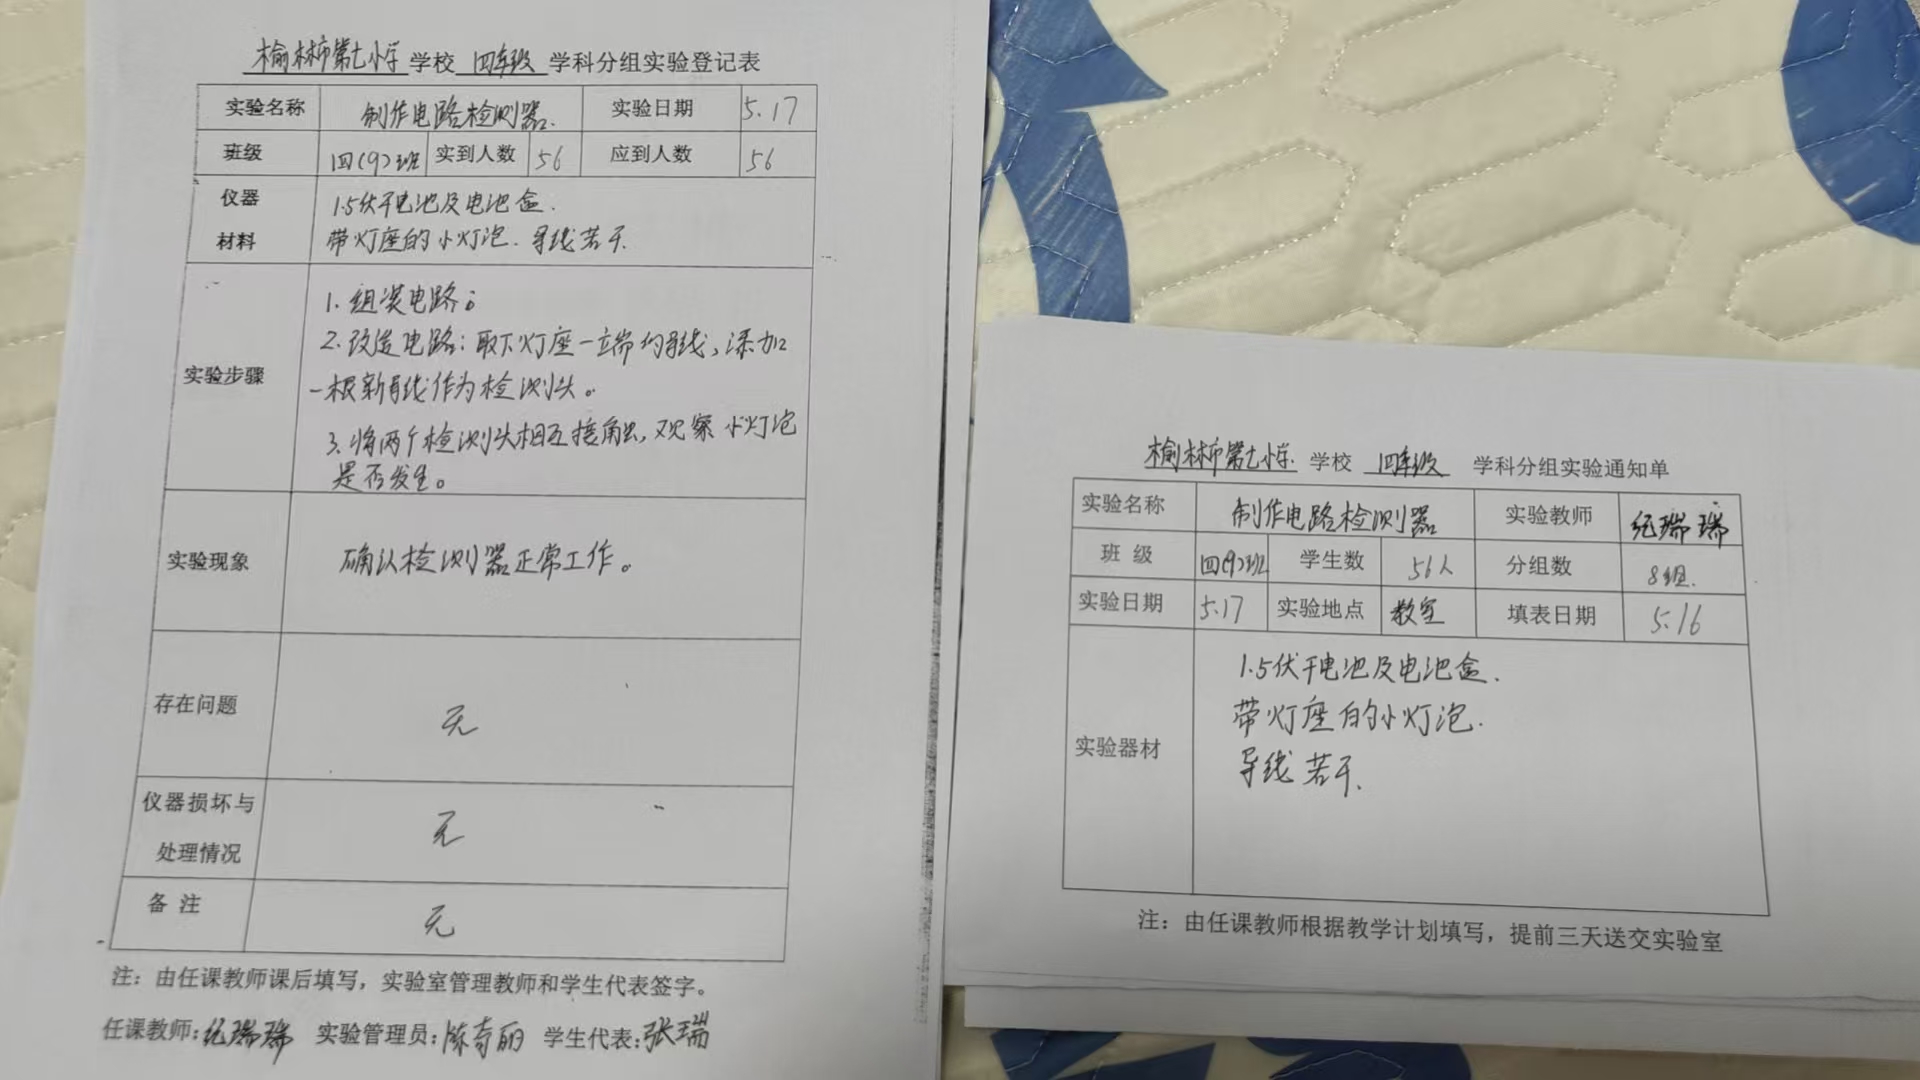 榆林市第七小学 学校 四年级 学科分组实验登记表
实验名称 制作电路检测器. 实验日期 5.17
班级 四(9)班 实到人数 56 应到人数 56
仪器 1.5伏干电池及电池盒.
材料 带灯座的小灯泡.导线若干.
1.组装电路。
2.改造电路:取下灯座一端的导线,添加
实验步骤 一根新导线作为检测头。
3.将两个检测头相互接触,观察小灯泡
是否发生。
实验现象 确认检测器正常工作。
存在问题 无
仪器损坏与
处理情况 无
备 注 无
注:由任课教师课后填写,实验室管理教师和学生代表签字。
任课教师:纪瑞瑞 实验管理员:陈奇丽 学生代表:张瑞
榆林市第七小学. 学校 四年级 学科分组实验通知单
实验名称 制作电路检测器 实验教师 纪瑞瑞
班 级 四(9)班 学生数 56人 分组数 8组.
实验日期 5.17 实验地点 教室 填表日期 5.16
1.5伏干电池及电池盒.
带灯座的小灯泡.
实验器材 导线若干.
注:由任课教师根据教学计划填写,提前三天送交实验室